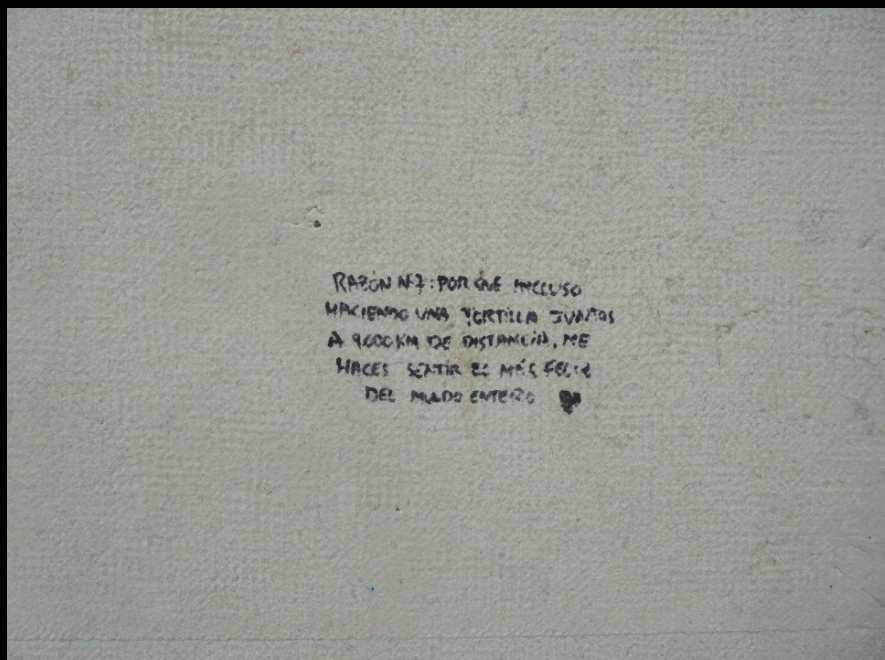 RAZÓN Nº7: POR QUE INCLUSO
HACIENDO UNA TORTILLA JUNTOS
A 9.000 KM DE DISTANCIA, ME
HACES SENTIR EL MÁS FELIZ
DEL MUNDO ENTERO